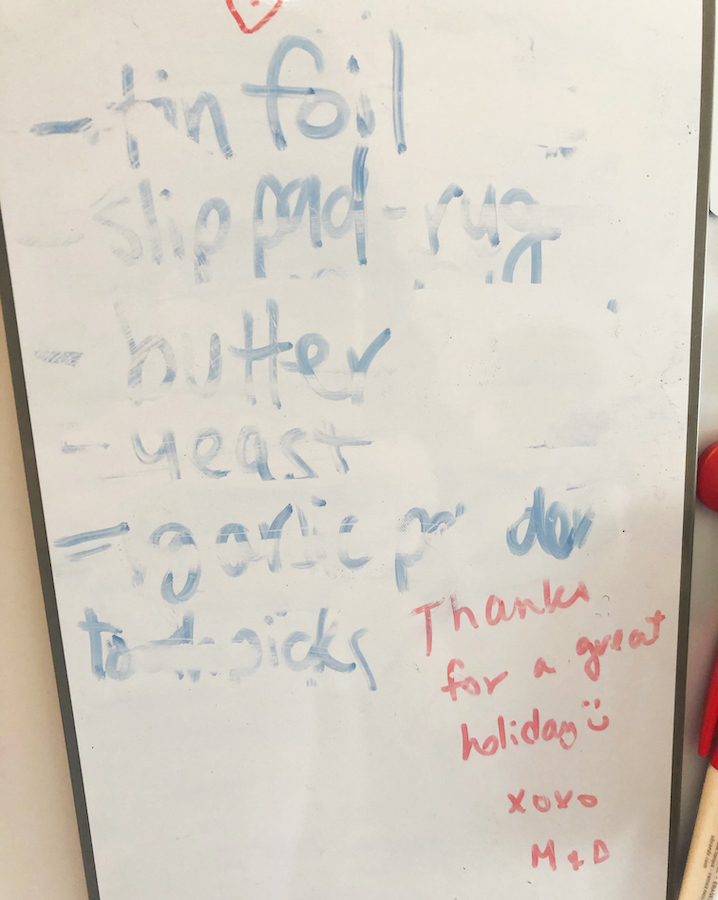 - tin foil
- slip pad - rug
- butter
- yeast
- garlic
picks
Thanks
for a great
holiday ü
xoxo
M + D